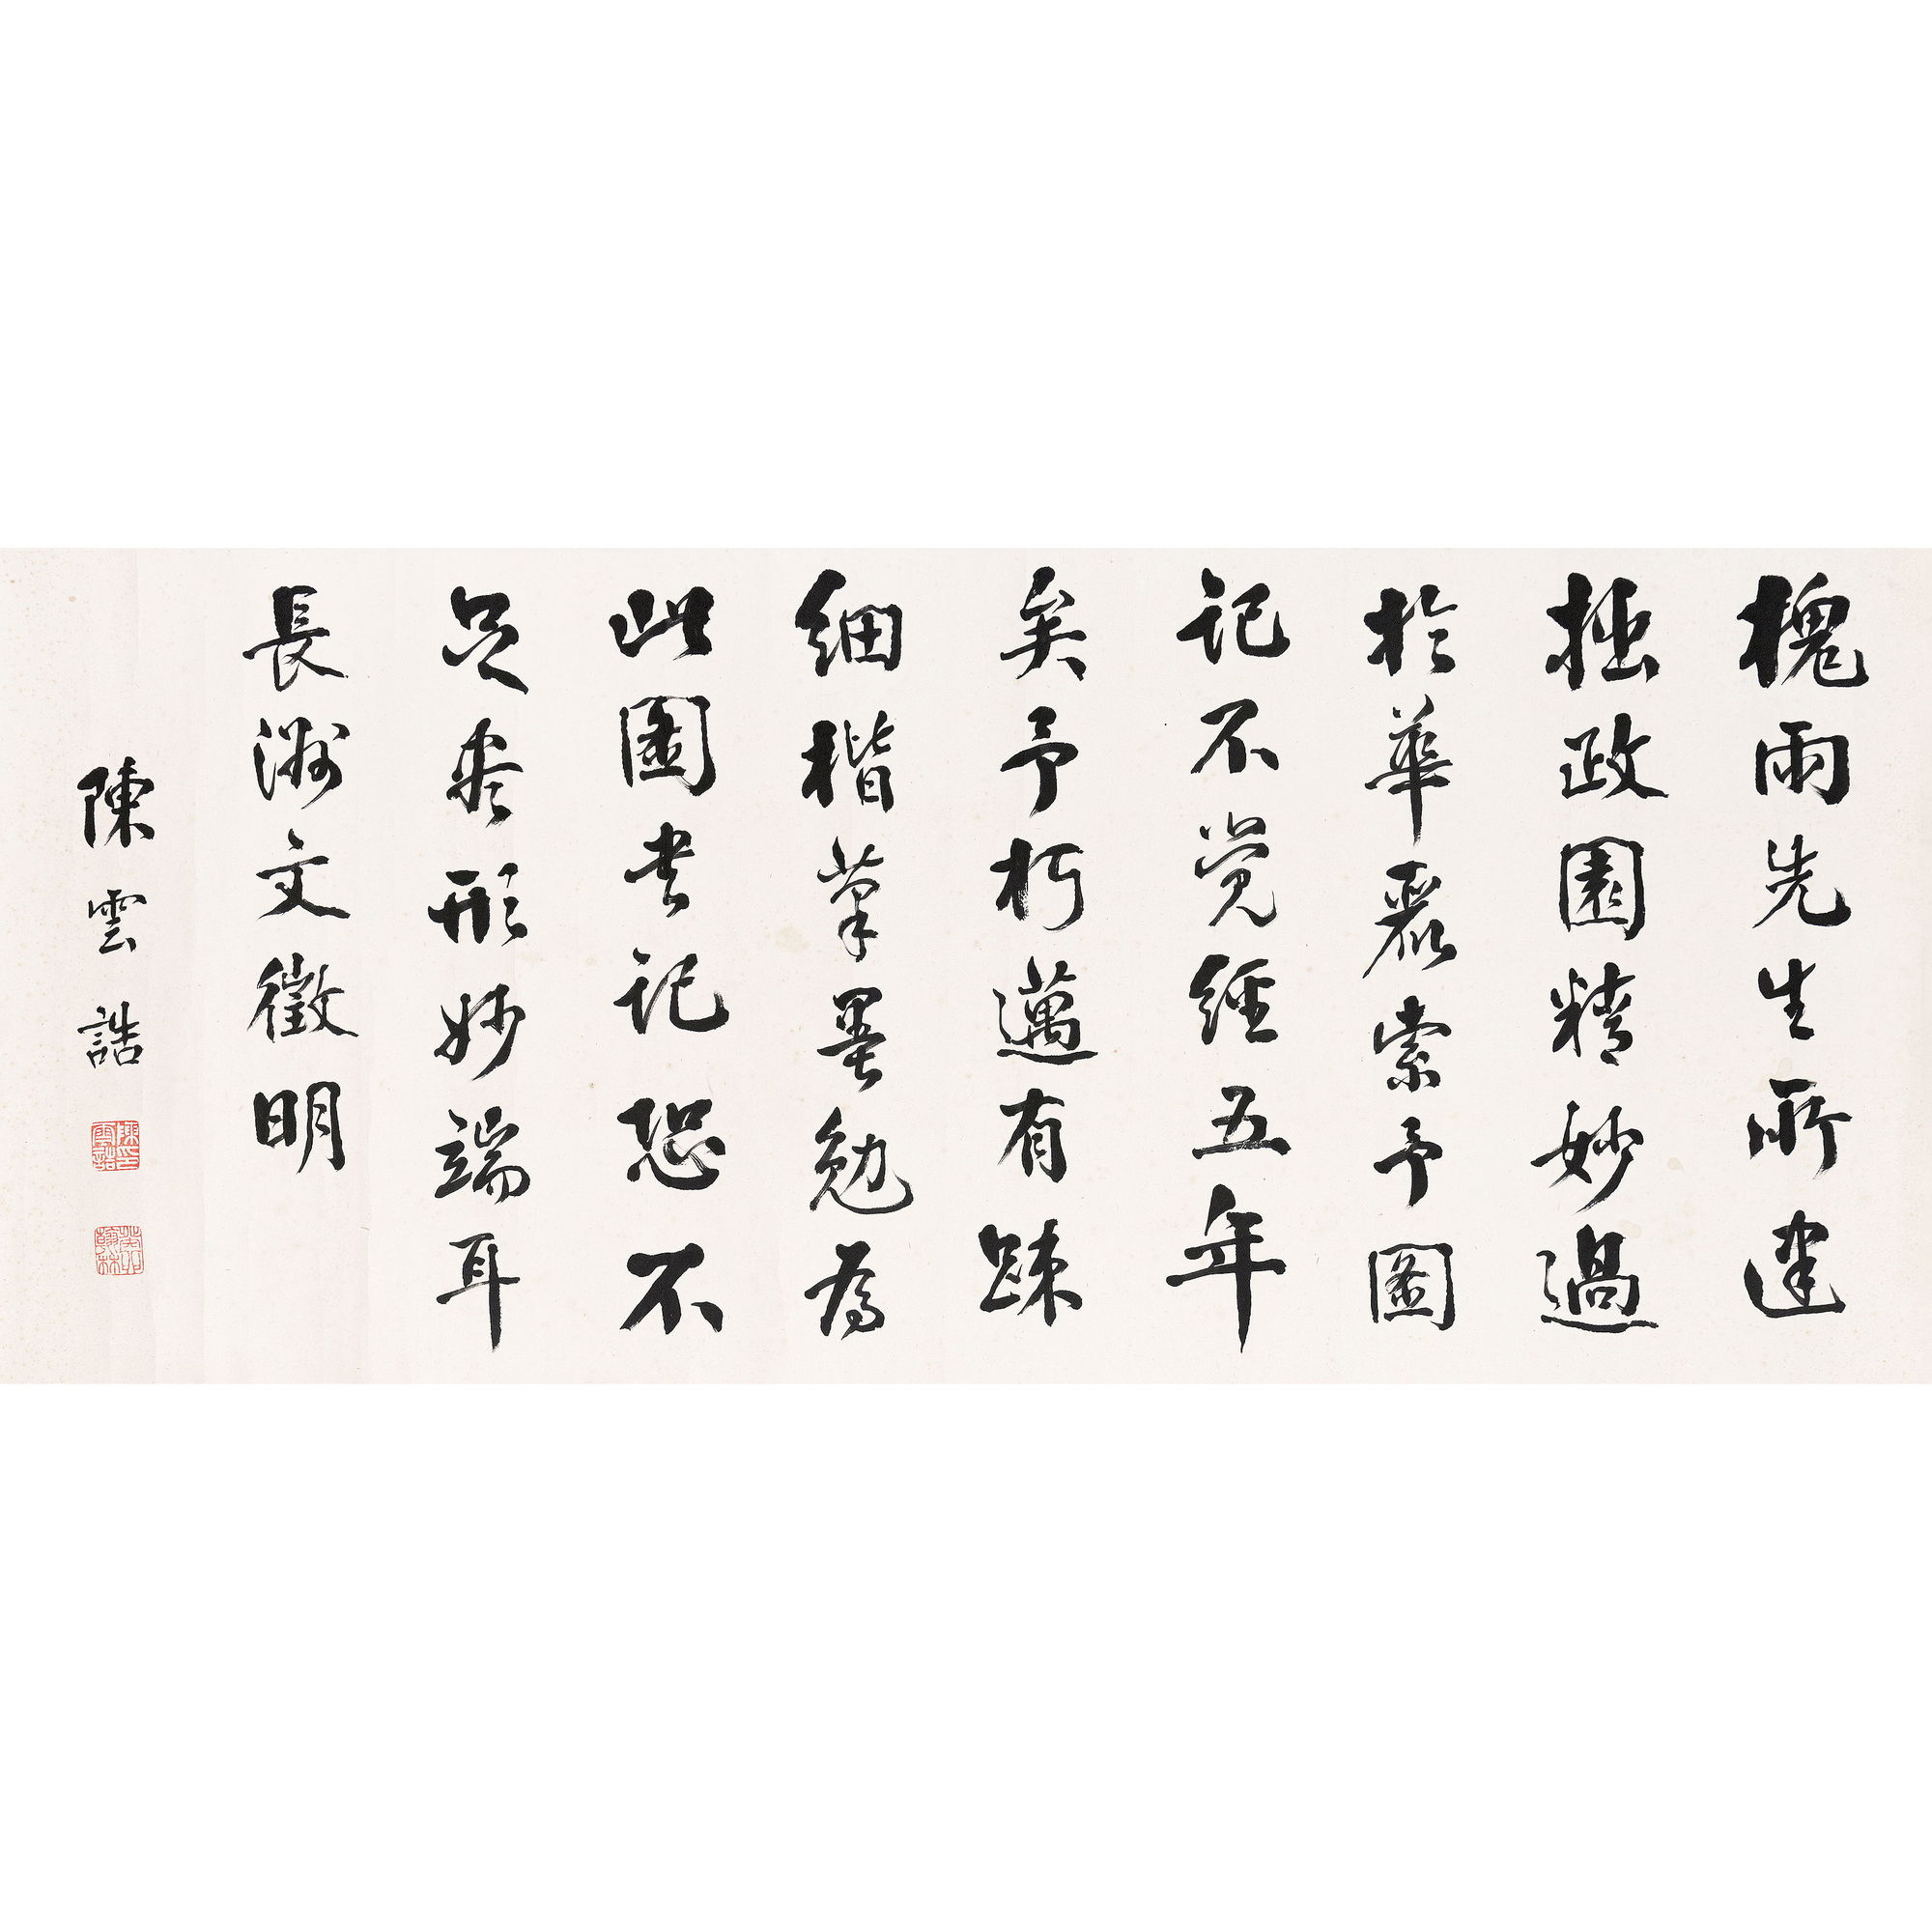 槐雨先生所建
拙政園精妙過
於華麗索予圖
記不覺經五年
矣予朽邁有踈
細楷筆墨勉為
此圖書記恐不
足盡形妙端耳
長洲文徵明
陳雲誥
陳印雲誥